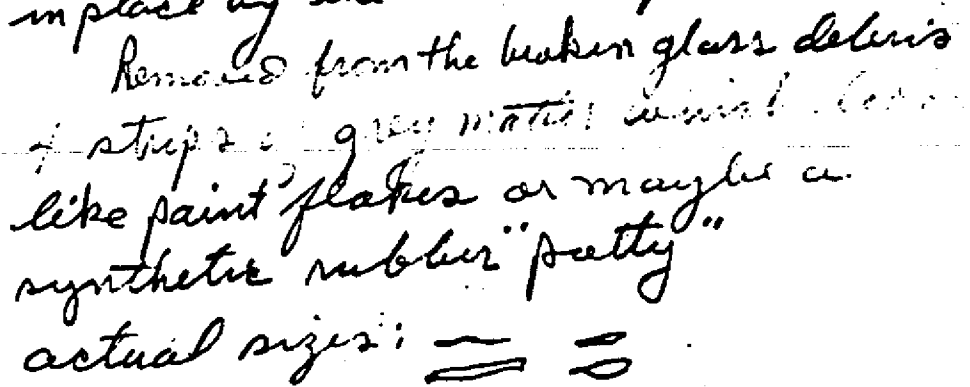 in place by the
Removed from the broken glass debris
4 strips of grey matter which look
like paint flakes or maybe a
synthetic rubber "putty"
actual sizes: